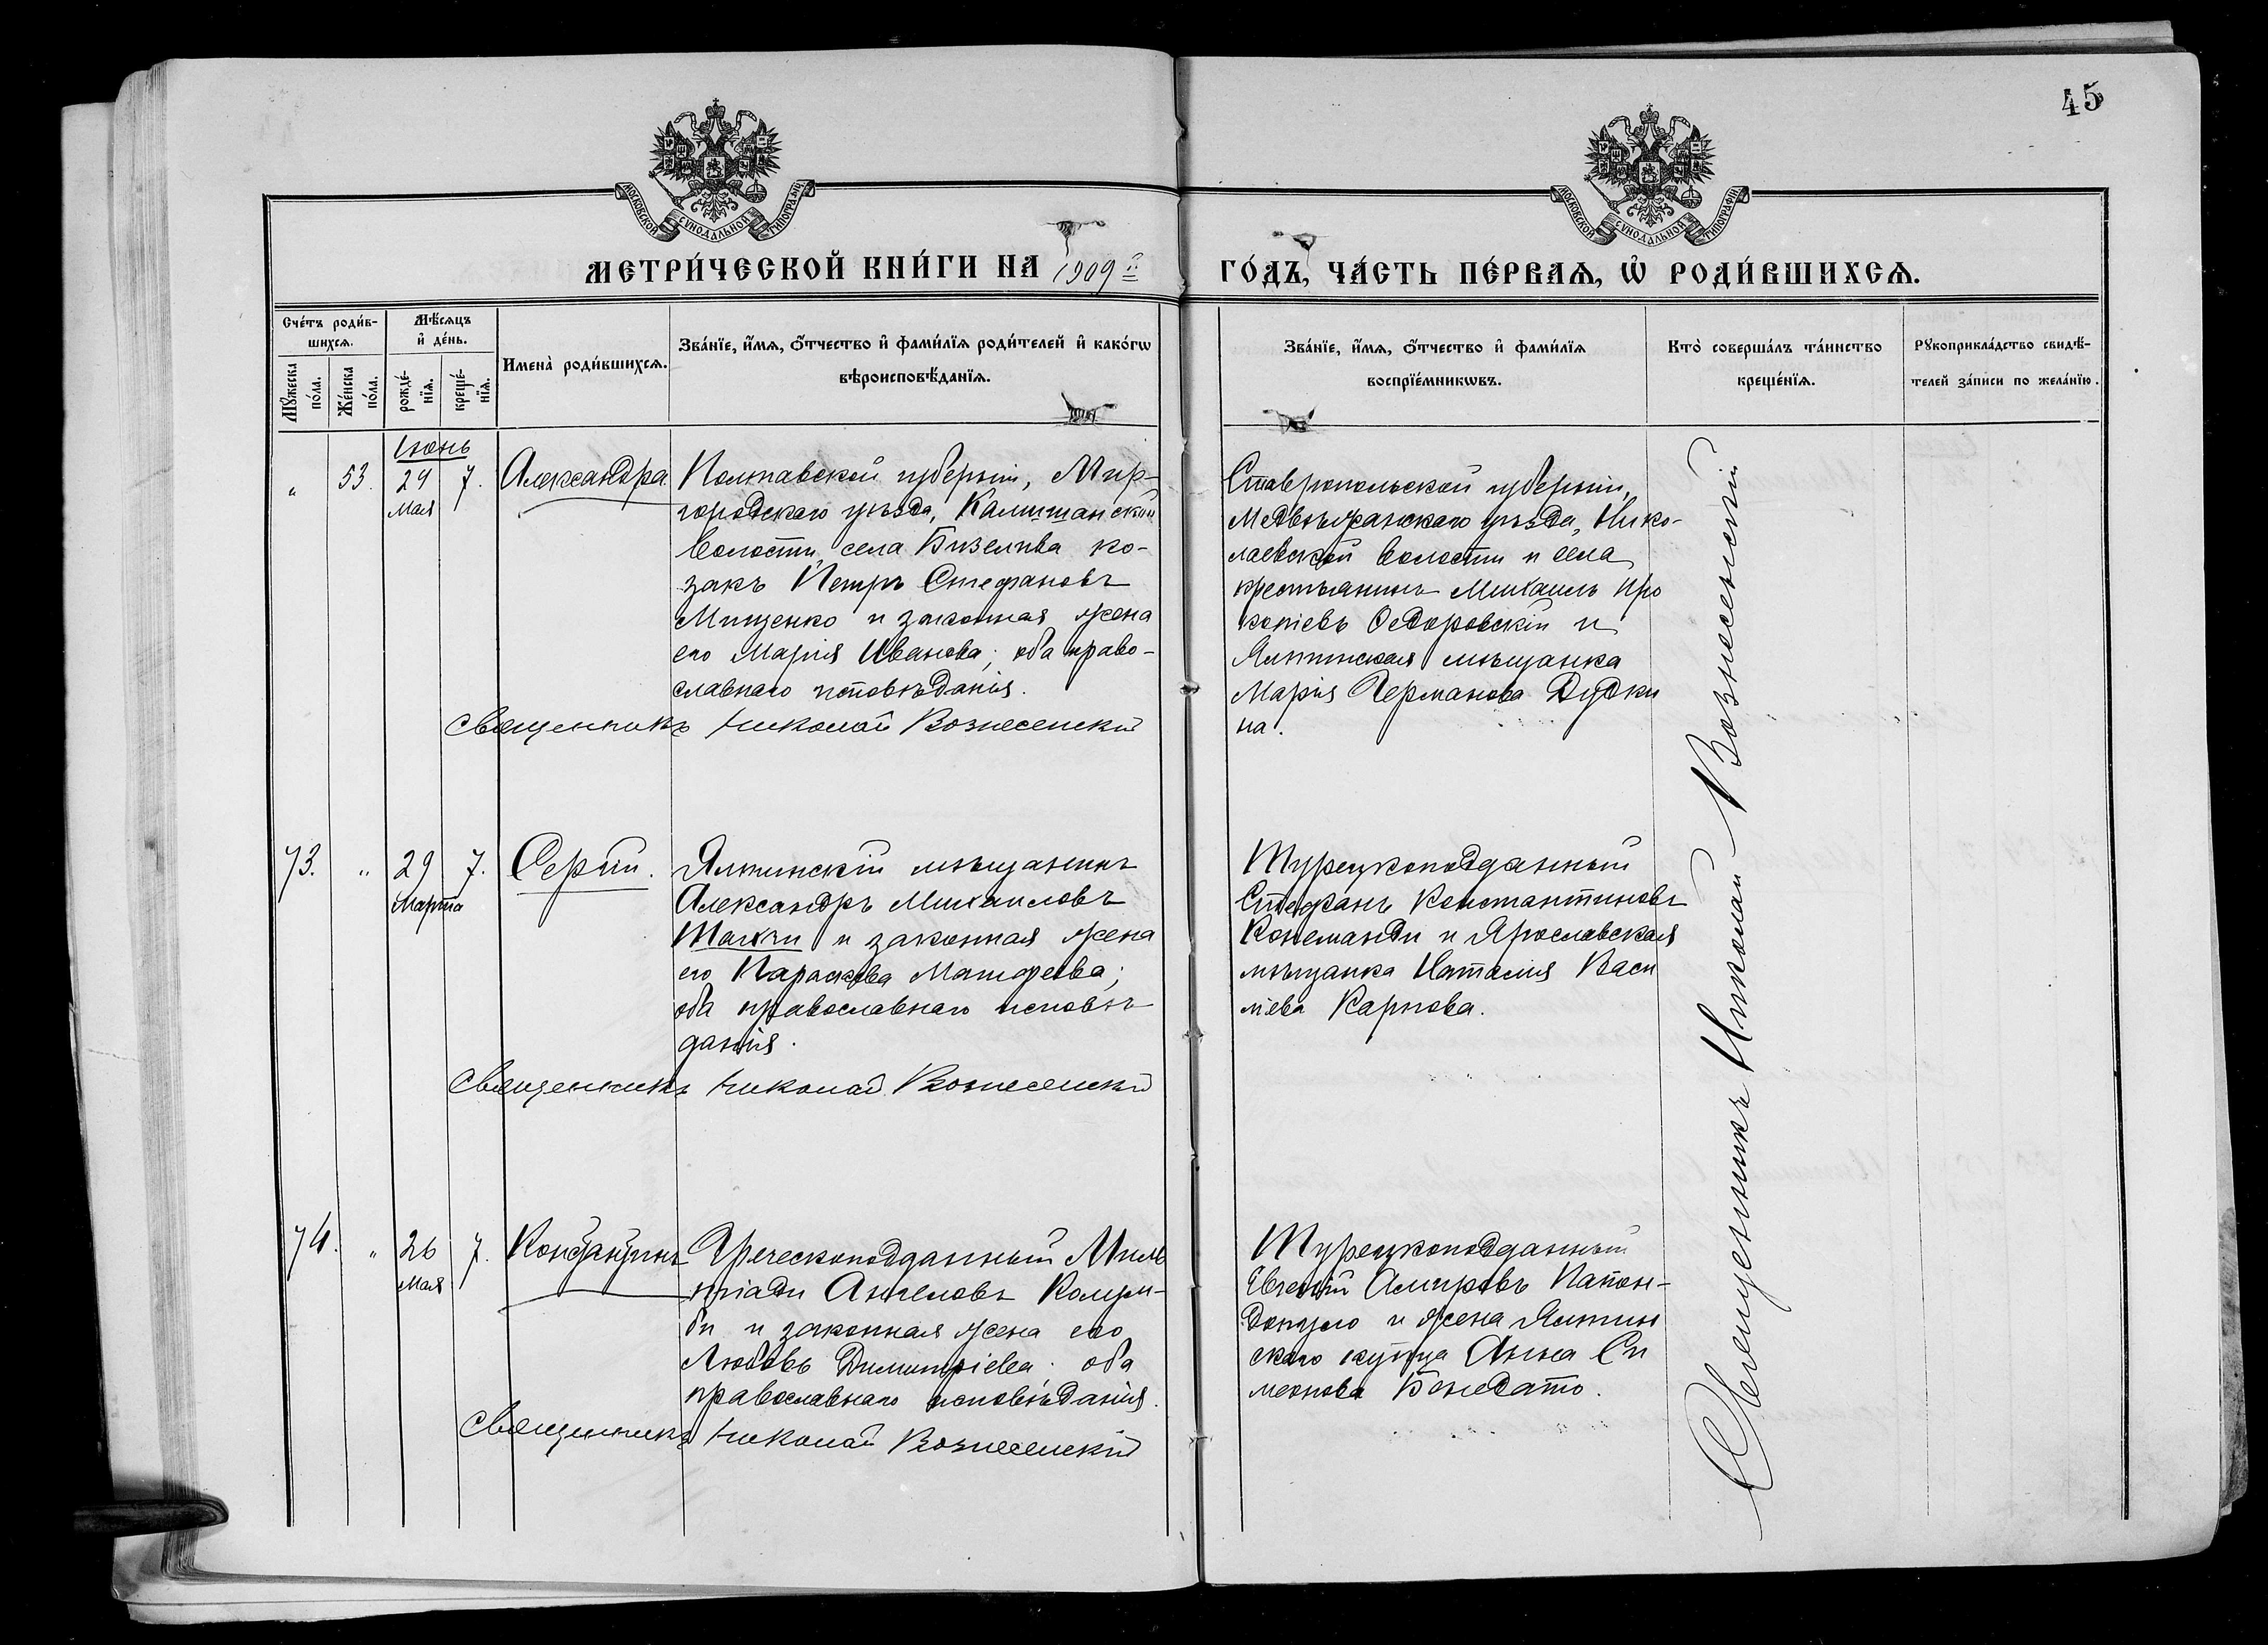 45
МОСКОВСКОЙ СѴНОДАЛЬНОЙ ТИПОГРАФІИ
МОСКОВСКОЙ СѴНОДАЛЬНОЙ ТИПОГРАФІИ
МЕТРИ́ЧЕСКОЙ КНИ́ГИ НА 1909й ГО́ДЪ, ЧА́СТЬ ПЕ́РВАѦ, Ѡ҆ РОДИ́ВШИХСѦ.
Сче́тъ роди́в-
шихсѧ.
Мꙋ́жеска
по́ла.
Же́нска
по́ла.
Мѣ́сѧцъ
и҆ де́нь.
рожде́-
нїѧ.
креще́-
нїѧ.
Имена̀ роди́вшихсѧ.
Зва́нїе, и҆́мѧ, ѻ҆́тчество и҆ фами́лїѧ роди́телей и҆ како́гѡ
вѣроисповѣ́данїѧ.
Зва́нїе, и҆́мѧ, ѻ҆́тчество и҆ фами́лїѧ
воспрїе́мникѡвъ.
Кто̀ соверша́лъ та́инство
креще́нїѧ.
Рꙋкоприкла́дство свидѣ́-
телей за́писи по жела́нїю.
Іюнь
" 53. 29 7. Александра
Мая
Полтавской губерніи, Мир-
городскаго уѣзда, Камышанской
волости, села Бизелива ко-
закъ Петръ Стефановъ
Мищенко и законная жена
его Марія Иванова; оба право-
славнаго исповѣданія.
Священникъ Николай Вознесенскій
Ставропольской губерніи,
Медвѣжанскаго уѣзда, Нико-
лаевской волости и села
крестьянинъ Михаилъ Про
копіевъ Ѳедоровскій и
Ялтинская мѣщанка
Марія Германова Дудки
на.
73. " 29 7. Сергій.
Марта
Ялтинскій мѣщанинъ
Александръ Михаиловъ
Такчи и законная жена
его Параскева Матфеева;
оба православнаго исповѣ
данія.
Священникъ Николай Вознесенскій
Турецкоподданный
Стефанъ Константиновъ
Конеманди и Ярославская
мѣщанка Наталія Васи
ліева Карпова.
74. " 26 7. Константинъ
Мая
Греческоподданный Миль
тіади Ангеловъ Колум-
би и законная жена его
Любовь Димитріева; оба
православнаго исповѣданія.
Священникъ Николай Вознесенскій
Турецкоподданный
Евгеній Папан-
допуло и жена Ялтин
скаго купца Анна Си
меонова Бенедато.
Священникъ Николай Вознесенскій